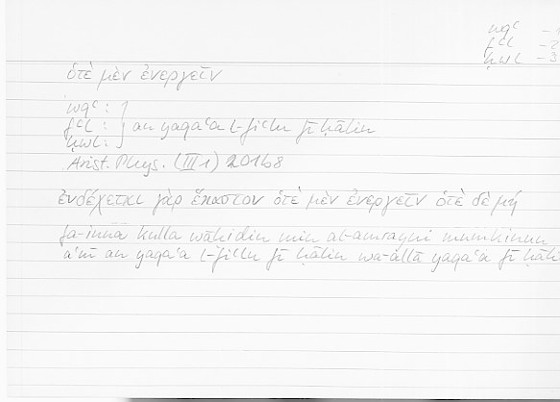 wqʿ – 1
fʿl – 2
ḥwl – 3
ὁτὲ μὲν ἐνεργεῖν
wqʿ :
fʿl : } an yaqaʿa l-fiʿlu fī ḥālin
ḥwl :
Arist. Phys. (III 1) 201b8
ἐνδέχεται γὰρ ἕκαστον ὁτὲ μὲν ἐνεργεῖν ὁτὲ δὲ μή
fa-inna kulla wāḥidin min al-amrayni mumkinun
aʿnī an yaqaʿa l-fiʿlu fī ḥālin wa-allā yaqaʿa fī ḥāli